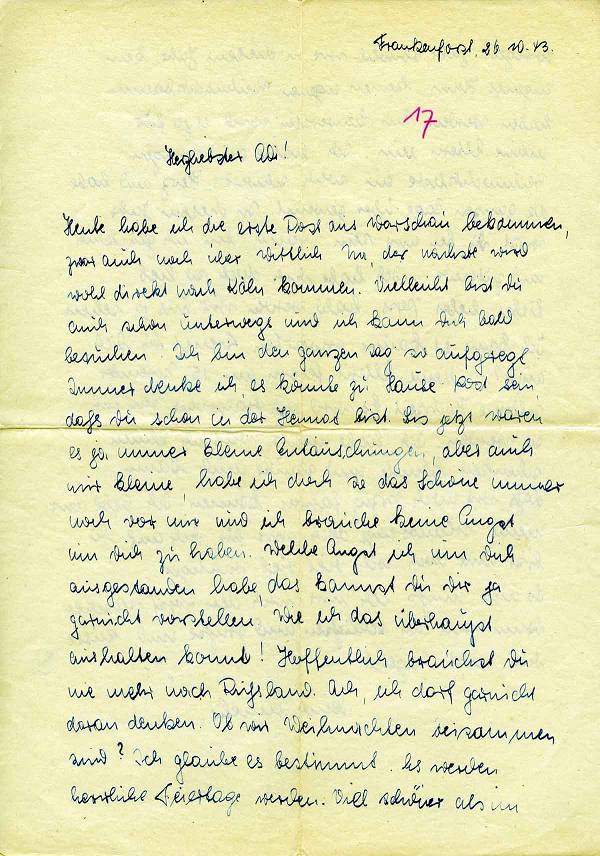 Frankenforst. 26.10.43.
17
Herzliebster Adi!
Heute habe ich die erste Post aus Warschau bekommen,
zwar auch noch über Wittlich. Na, der nächste wird
wohl direkt nach Köln kommen. Vielleicht bist du
auch schon unterwegs und ich kann Dich bald
besuchen. Ich bin den ganzen Tag so aufgeregt
Immer denke ich, es könnte zu Hause Post sein,
daß du schon in der Heimat bist. Bis jetzt waren
es ja immer kleine Entäuschungen, aber auch
nur kleine, habe ich doch ja das Schöne immer
noch vor mir und ich brauche keine Angst
um Dich zu haben. Welche Angst ich um Dich
ausgestanden habe, das kannst du dir ja
garnicht vorstellen, Wie ich das überhaupt
aushalten konnt! Hoffentlich brauchst du
nie mehr nach Rußland. Ach, ich darf garnicht
daran denken. Ob wir Weihnachten beisammen
sind? Ich glaube es bestimmt. Es werden
herrliche Feiertage werden. Viel schöner als im